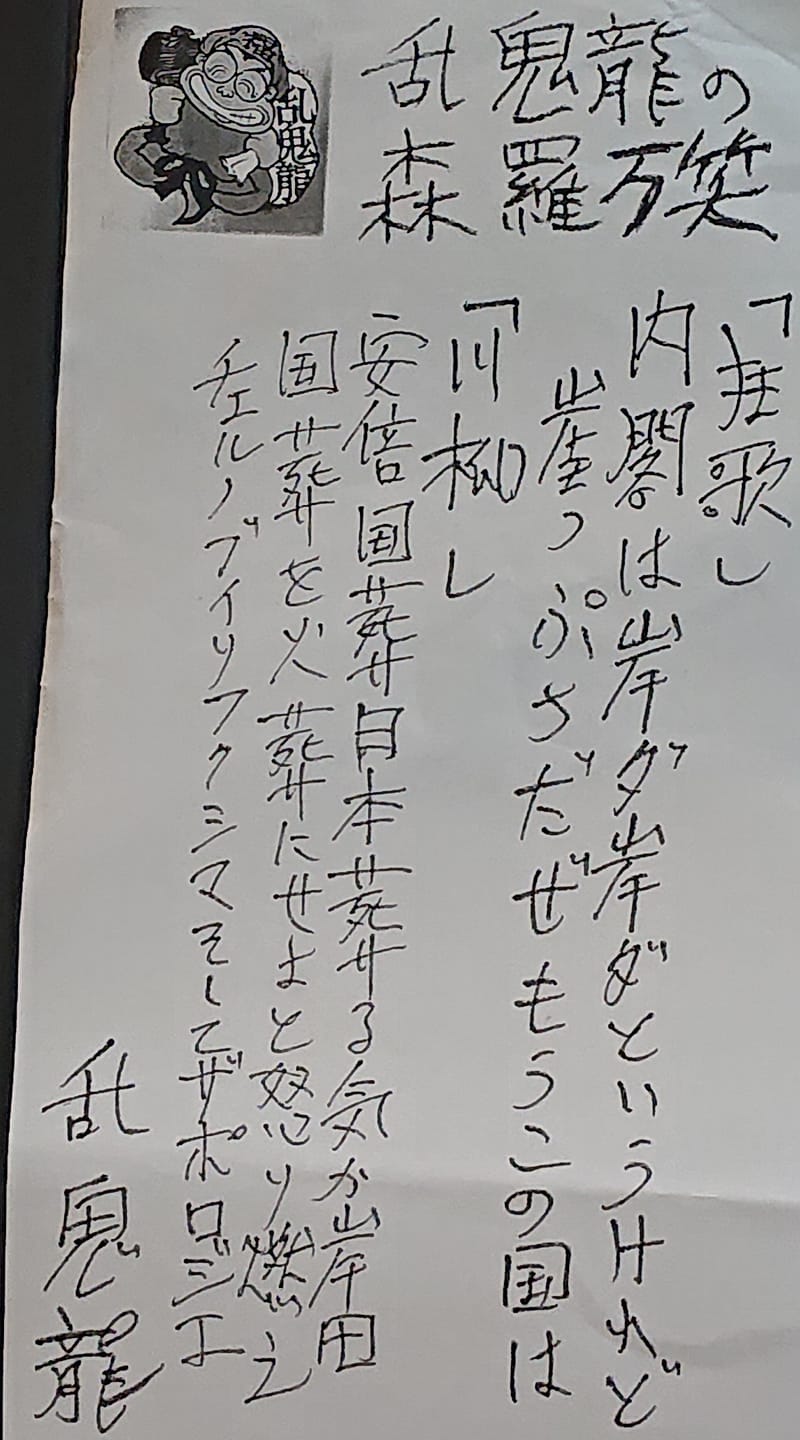 乱鬼龍の
森羅万笑
乱鬼龍
「狂歌」
内閣は岸ダ岸ダというけれど
崖っぷちだぜもうこの国は
「川柳」
安倍国葬日本葬る気か岸田
国葬を火葬にせよと怒り燃え
チェルノブイリフクシマそしてザポロジエ
乱鬼龍